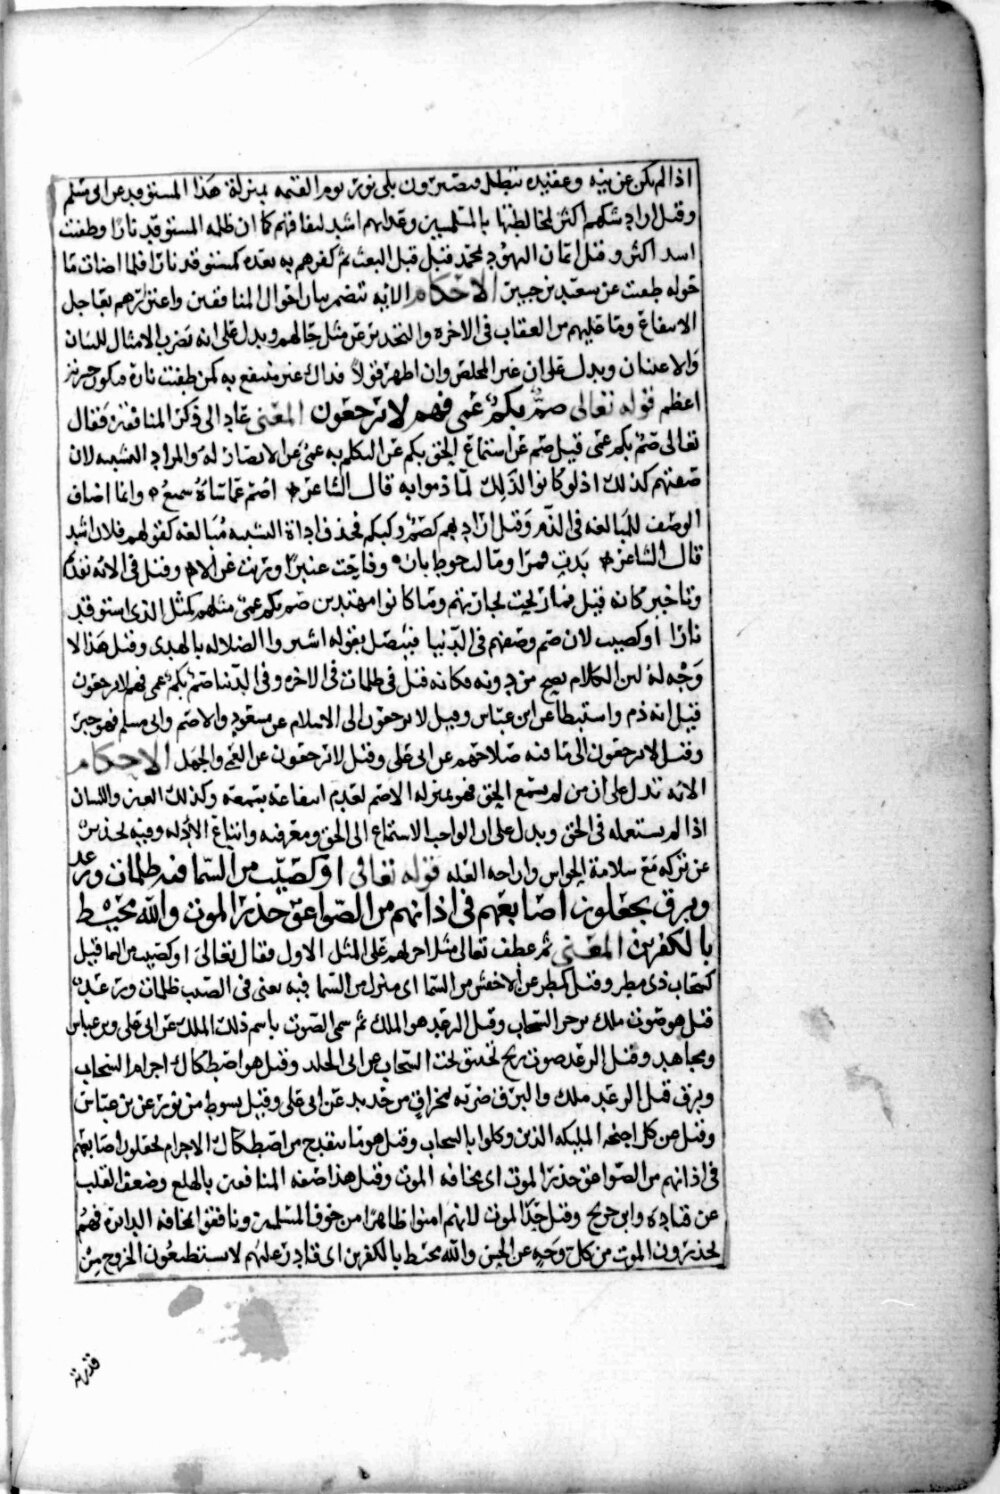 اذا لم يكن عن نيه وعقيده تبطل فيصيرون بلى نور يوم القيمه بمنزلة هذا المستوقد عن ابى مسلم
وقيل اراد شكهم اكثر لمخالطتها بالمسلمين وعذابهم اشد لنفاقهم كما ان ظلمه المستوقد نارًا وطفئت
اسد اكثر وقيل ايمان اليهود بمحمد قبل البعث ثم كفرهم به بعده كمستوقد نارا فلما اضات ما
حوله طفئت عن سعيد بن جبير الاحكام الايه تتضمن بيان احوال المنافقين واغترارهم بعاجل
الانتفاع وما عليهم من العقاب فى الاخره والتحذير عن مثل حالهم ويدل على انه تضرب الامثال للبيان
والاعتبار ويدل على ان غير المخلص وان اظهر قولًا فذاك غير منتفع به كمن طفئت ناره فيكون حيرته
اعظم قوله تعالى صم بكم عمى فهم لا يرجعون المعنى عاد الى ذكر المنافقين فقال
تعالى صم بكم عمى قيل صم عن استماع الحق بكم عن التكلم به عمى عن الابصار له والمراد التشبيه لان
صفتهم كذلك اذ لو كانوا كذلك لما ذموا به قال الشاعر اصم عما ساءه سميع وانما اضاف
الوصف للمبالغه فى الذم وقيل اراد بهم كصم وكبكم فحذف اداة التشبيه مبالغه كقولهم فلان اشد
قال الشاعر بدت قمرا ومالت خوط بان وفاحت عنبرًا ورنت غزالا وقيل فى الايه تقديم
وتاخير كانه قيل فما ربحت تجارتهم وما كانوا مهتدين صم بكم عمى مثلهم كمثل الذى استوقد
نارًا او كصيب لان صم وصفهم فى الدنيا فيتصل بقوله اشتروا الضلاله بالهدى وقيل هذا لا
وجه له لان الكلام يصح من دونه فكانه قيل فى ظلمات فى الاخره وفى الدنيا صم بكم عمى فهم لا يرجعون
قيل انه ذم واستبطا عن ابن عباس وقيل لا يرجعون الى الاسلام عن مسعود والاصم وابى مسلم فهو خبر
وقيل لا يرجعون الى ما فيه صلاحهم عن ابى على وقيل لا يرجعون عن العمى والجهل الاحكام
الايه تدل على ان من لم يستمع الحق فهو بمنزله الاصم لعدم انتفاعه بسمعه وكذلك العين واللسان
اذا لم يستعمله فى الحق ويدل على ان الواجب الاستماع الى الحق ومعرفته واتباع الادله وفيه تحذير
عن تركه مع سلامة الحواس وازاحه العله قوله تعالى او كصيب من السما فيه ظلمات ورعد
وبرق يجعلون اصابعهم فى اذانهم من الصواعق حذر الموت والله محيط
بالكفرين المعنى ثم عطف تعالى مثل اخر لهم على المثل الاول فقال تعالى او كصيب من السما قيل
كسحاب ذى مطر وقيل كمطر عن الاخفش من السما اى منزل من السما فيه يعنى فى الصيب ظلمات ورعد
قيل هو صوت ملك يزجر السحاب وقيل الرعد هو الملك ثم سمى الصوت باسم ذلك الملك عن ابى على وبن عباس
ومجاهد وقيل الرعد صوت ريح تختنق تحت السحاب عن ابى الجلد وقيل هو اصطكاك اجرام السحاب
وبرق قيل الرعد ملك والبرق ضربه بمخراق من حديد عن ابى على وقيل بسوط من نور عن بن عباس
وقيل عن كل اجنحه المليكه الذين وكلوا بالسحاب وقيل هو ما ينقدح من اصطكاك الاجرام يجعلون اصابعهم
فى اذانهم من الصواعق حذر الموت اى مخافه الموت وقيل هذا صفه المنافقين بالهلع وضعف القلب
عن قتاده وابن جريج وقيل حذر الموت لانهم امنوا ظاهرًا من خوف المسلمين ونافقوا مخافه الدايره فهم
يحذرون الموت من كل وجه عن الحسن والله محيط بالكفرين اى قادر عليهم لا يستطيعون الخروج من
قدرته